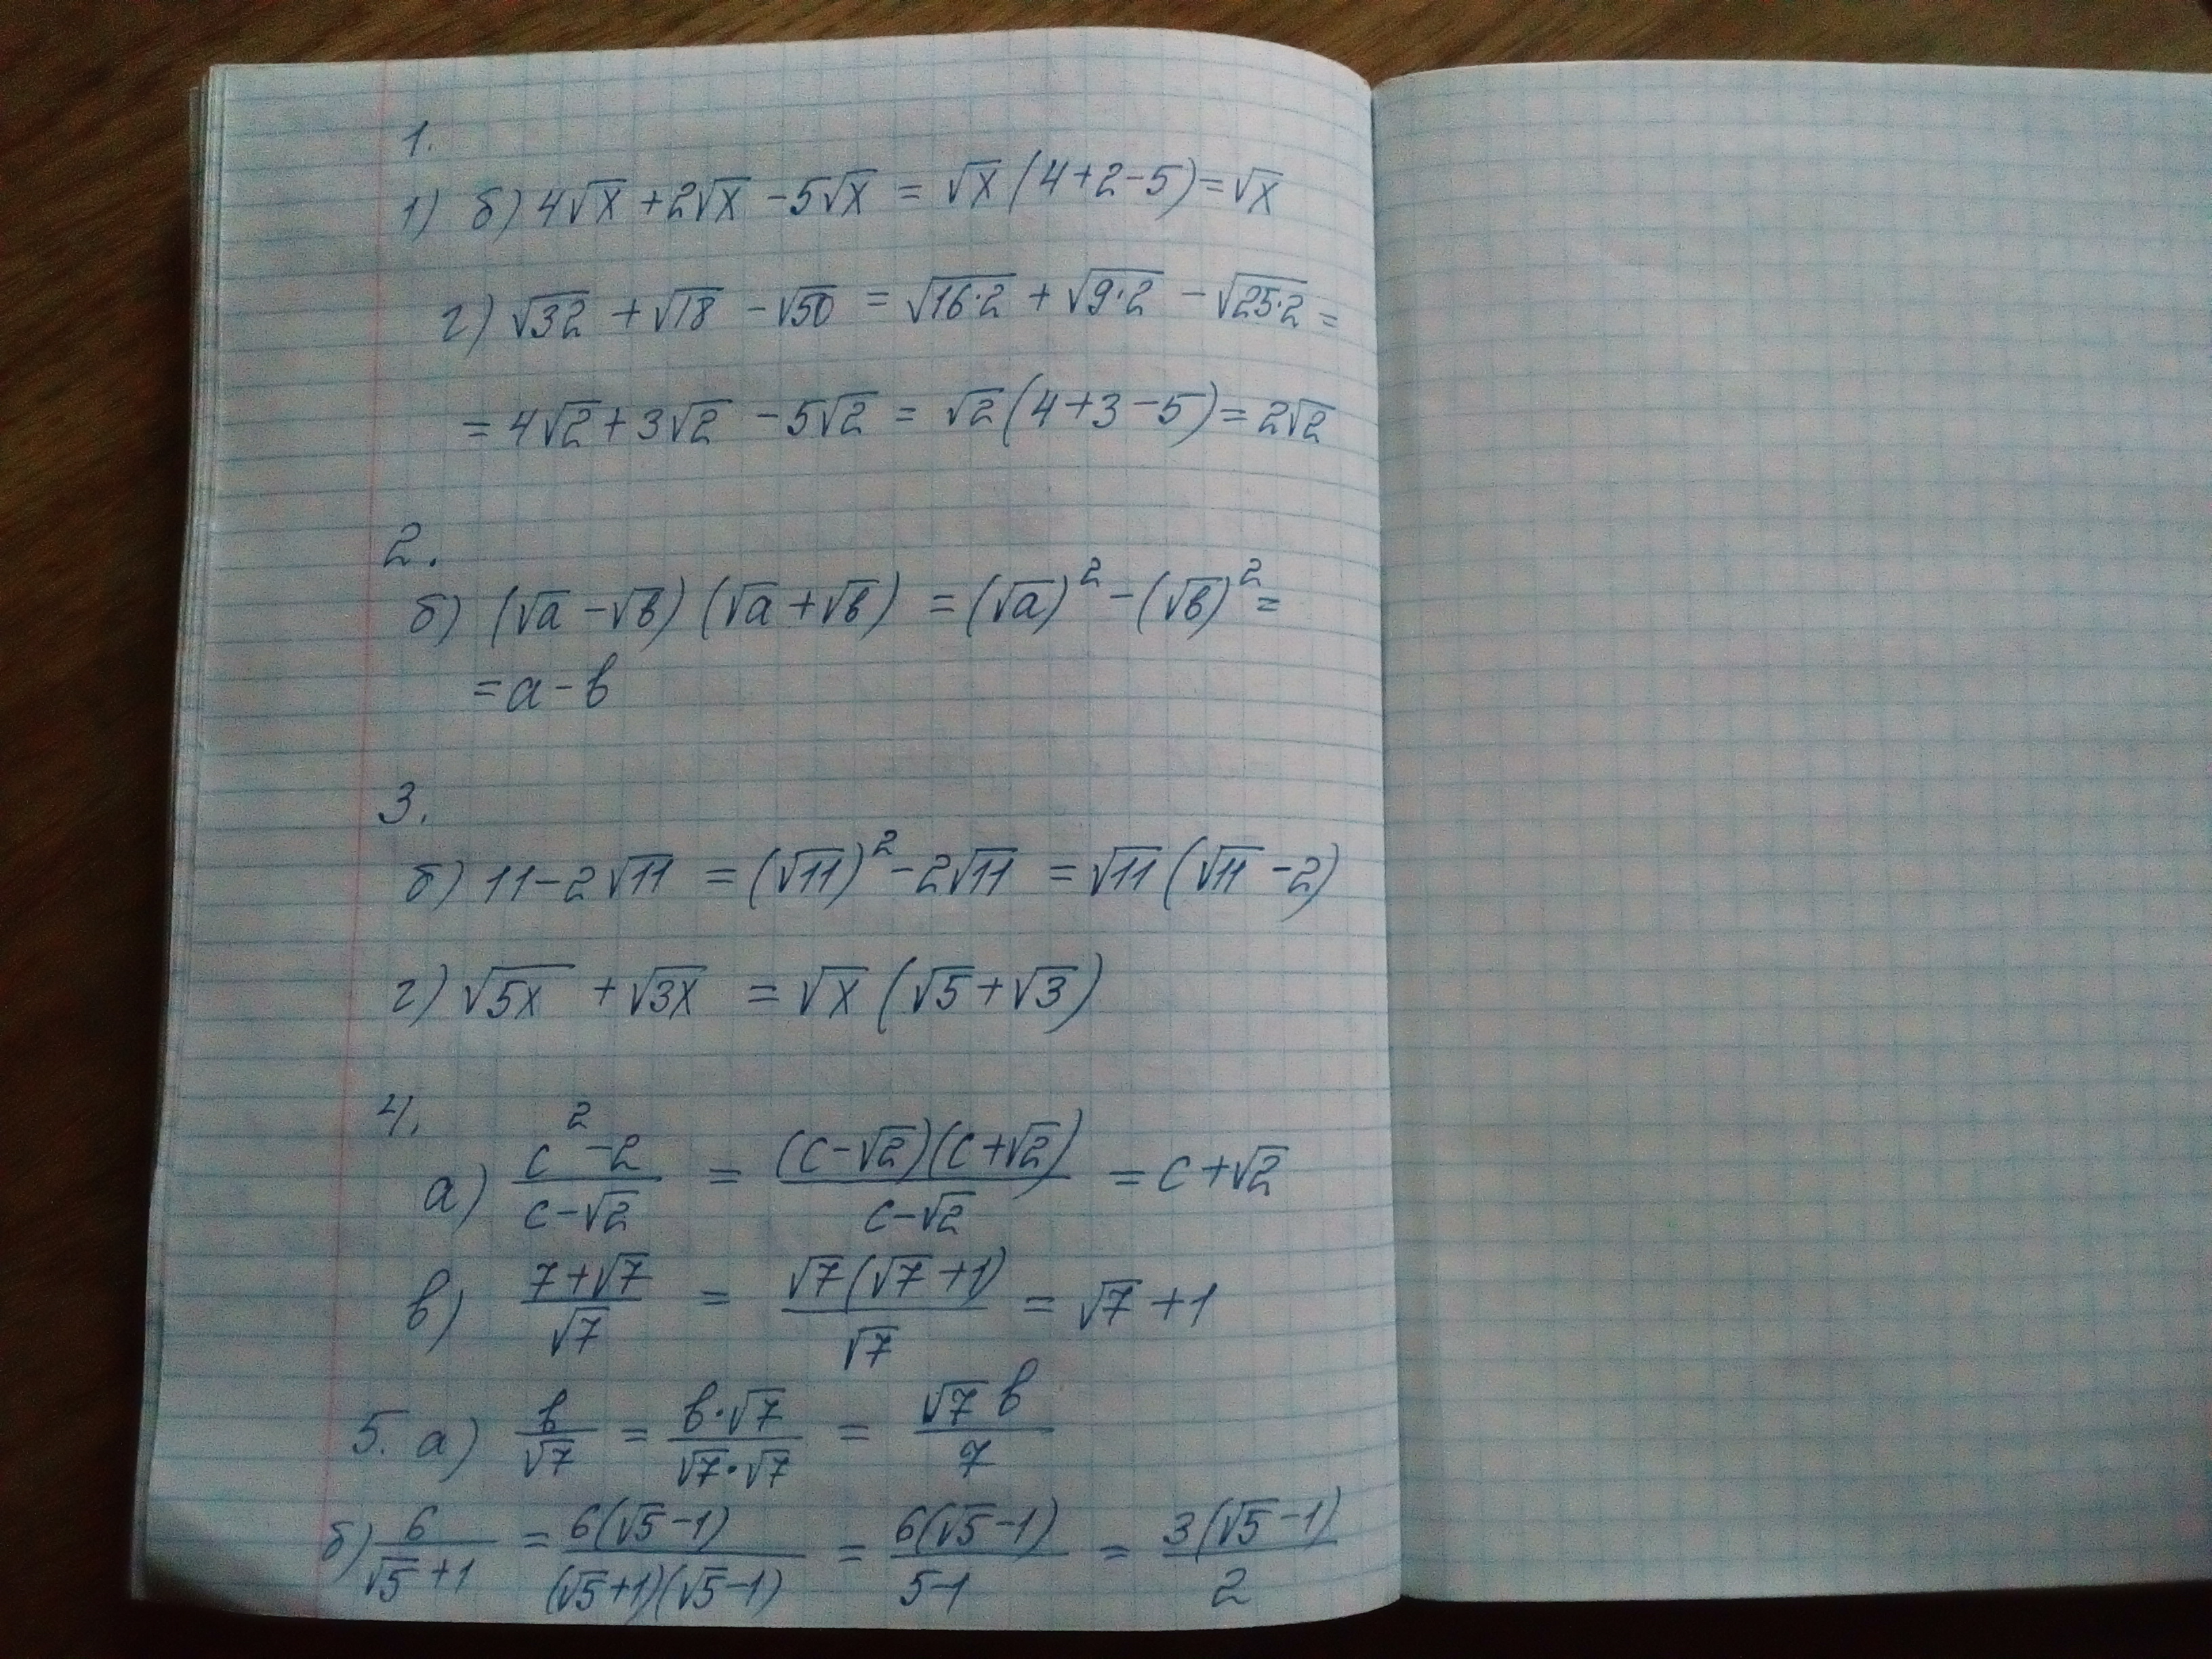 1.
1) б) 4√x + 2√x - 5√x = √x (4+2-5) = √x
г) √32 + √18 - √50 = √16·2 + √9·2 - √25·2 =
= 4√2 + 3√2 - 5√2 = √2 (4+3-5) = 2√2
2.
б) (√a - √в) (√a + √в) = (√a)² - (√в)² =
= a - в
3.
б) 11 - 2√11 = (√11)² - 2√11 = √11 (√11 - 2)
г) √5x + √3x = √x (√5 + √3)
4.
а) (c² - 2)/(c - √2) = ((c - √2)(c + √2))/(c - √2) = c + √2
в) (7 + √7)/√7 = (√7 (√7 + 1))/√7 = √7 + 1
5. а) в/√7 = (в·√7)/(√7·√7) = (√7 в)/7
б) 6/(√5 + 1) = (6(√5 - 1))/((√5 + 1)(√5 - 1)) = (6(√5 - 1))/(5 - 1) = (3(√5 - 1))/2